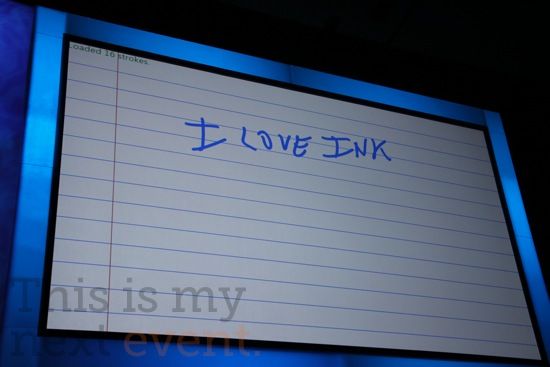 Loaded 16 strokes.
I LOVE INK
This is my
next event.